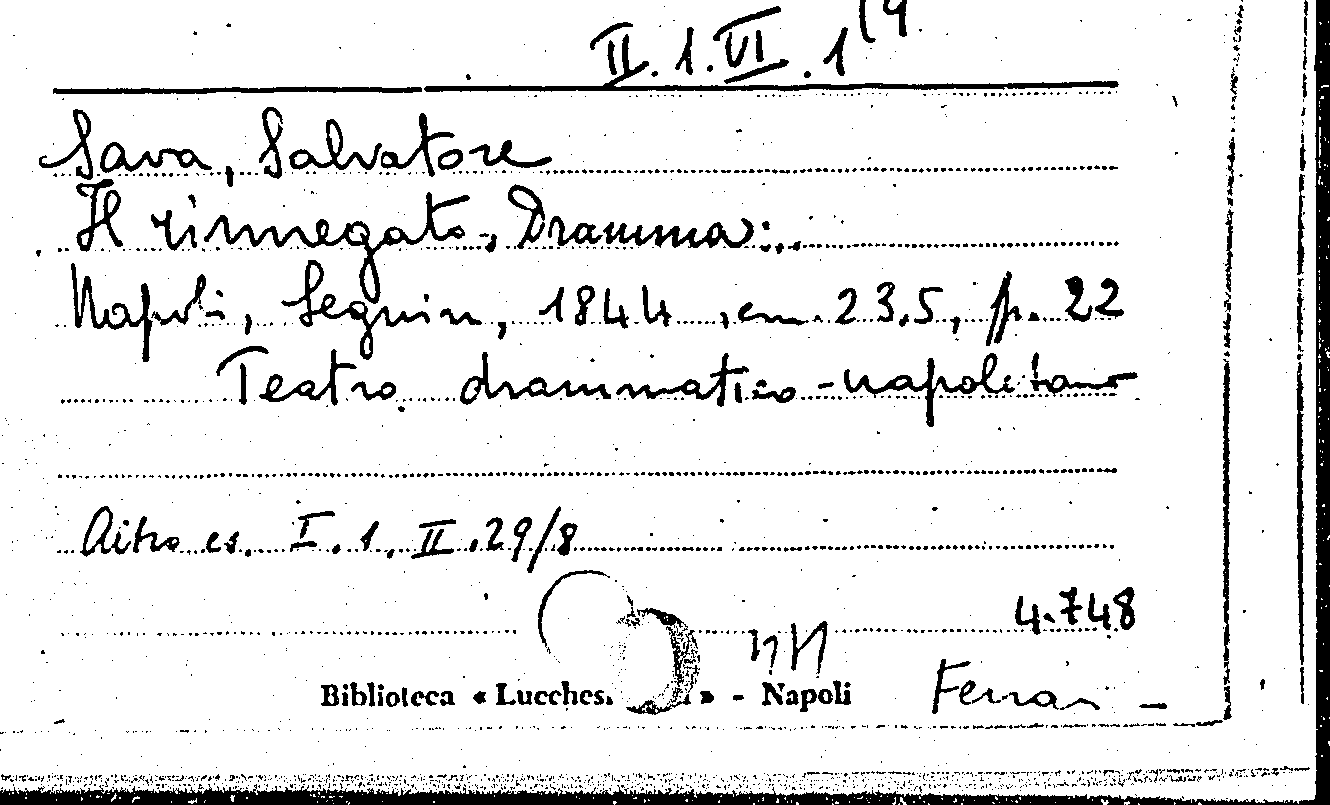 II.1.VI.1(9
Sava, Salvatore
Il rinnegato, Dramma...
Napoli, Seguin, 1844, cm. 23,5, p. 22
Teatro drammatico-napoletano
Altro es. I.1.II.29/8
4.748
Biblioteca « Lucches » - Napoli
Ferrari -